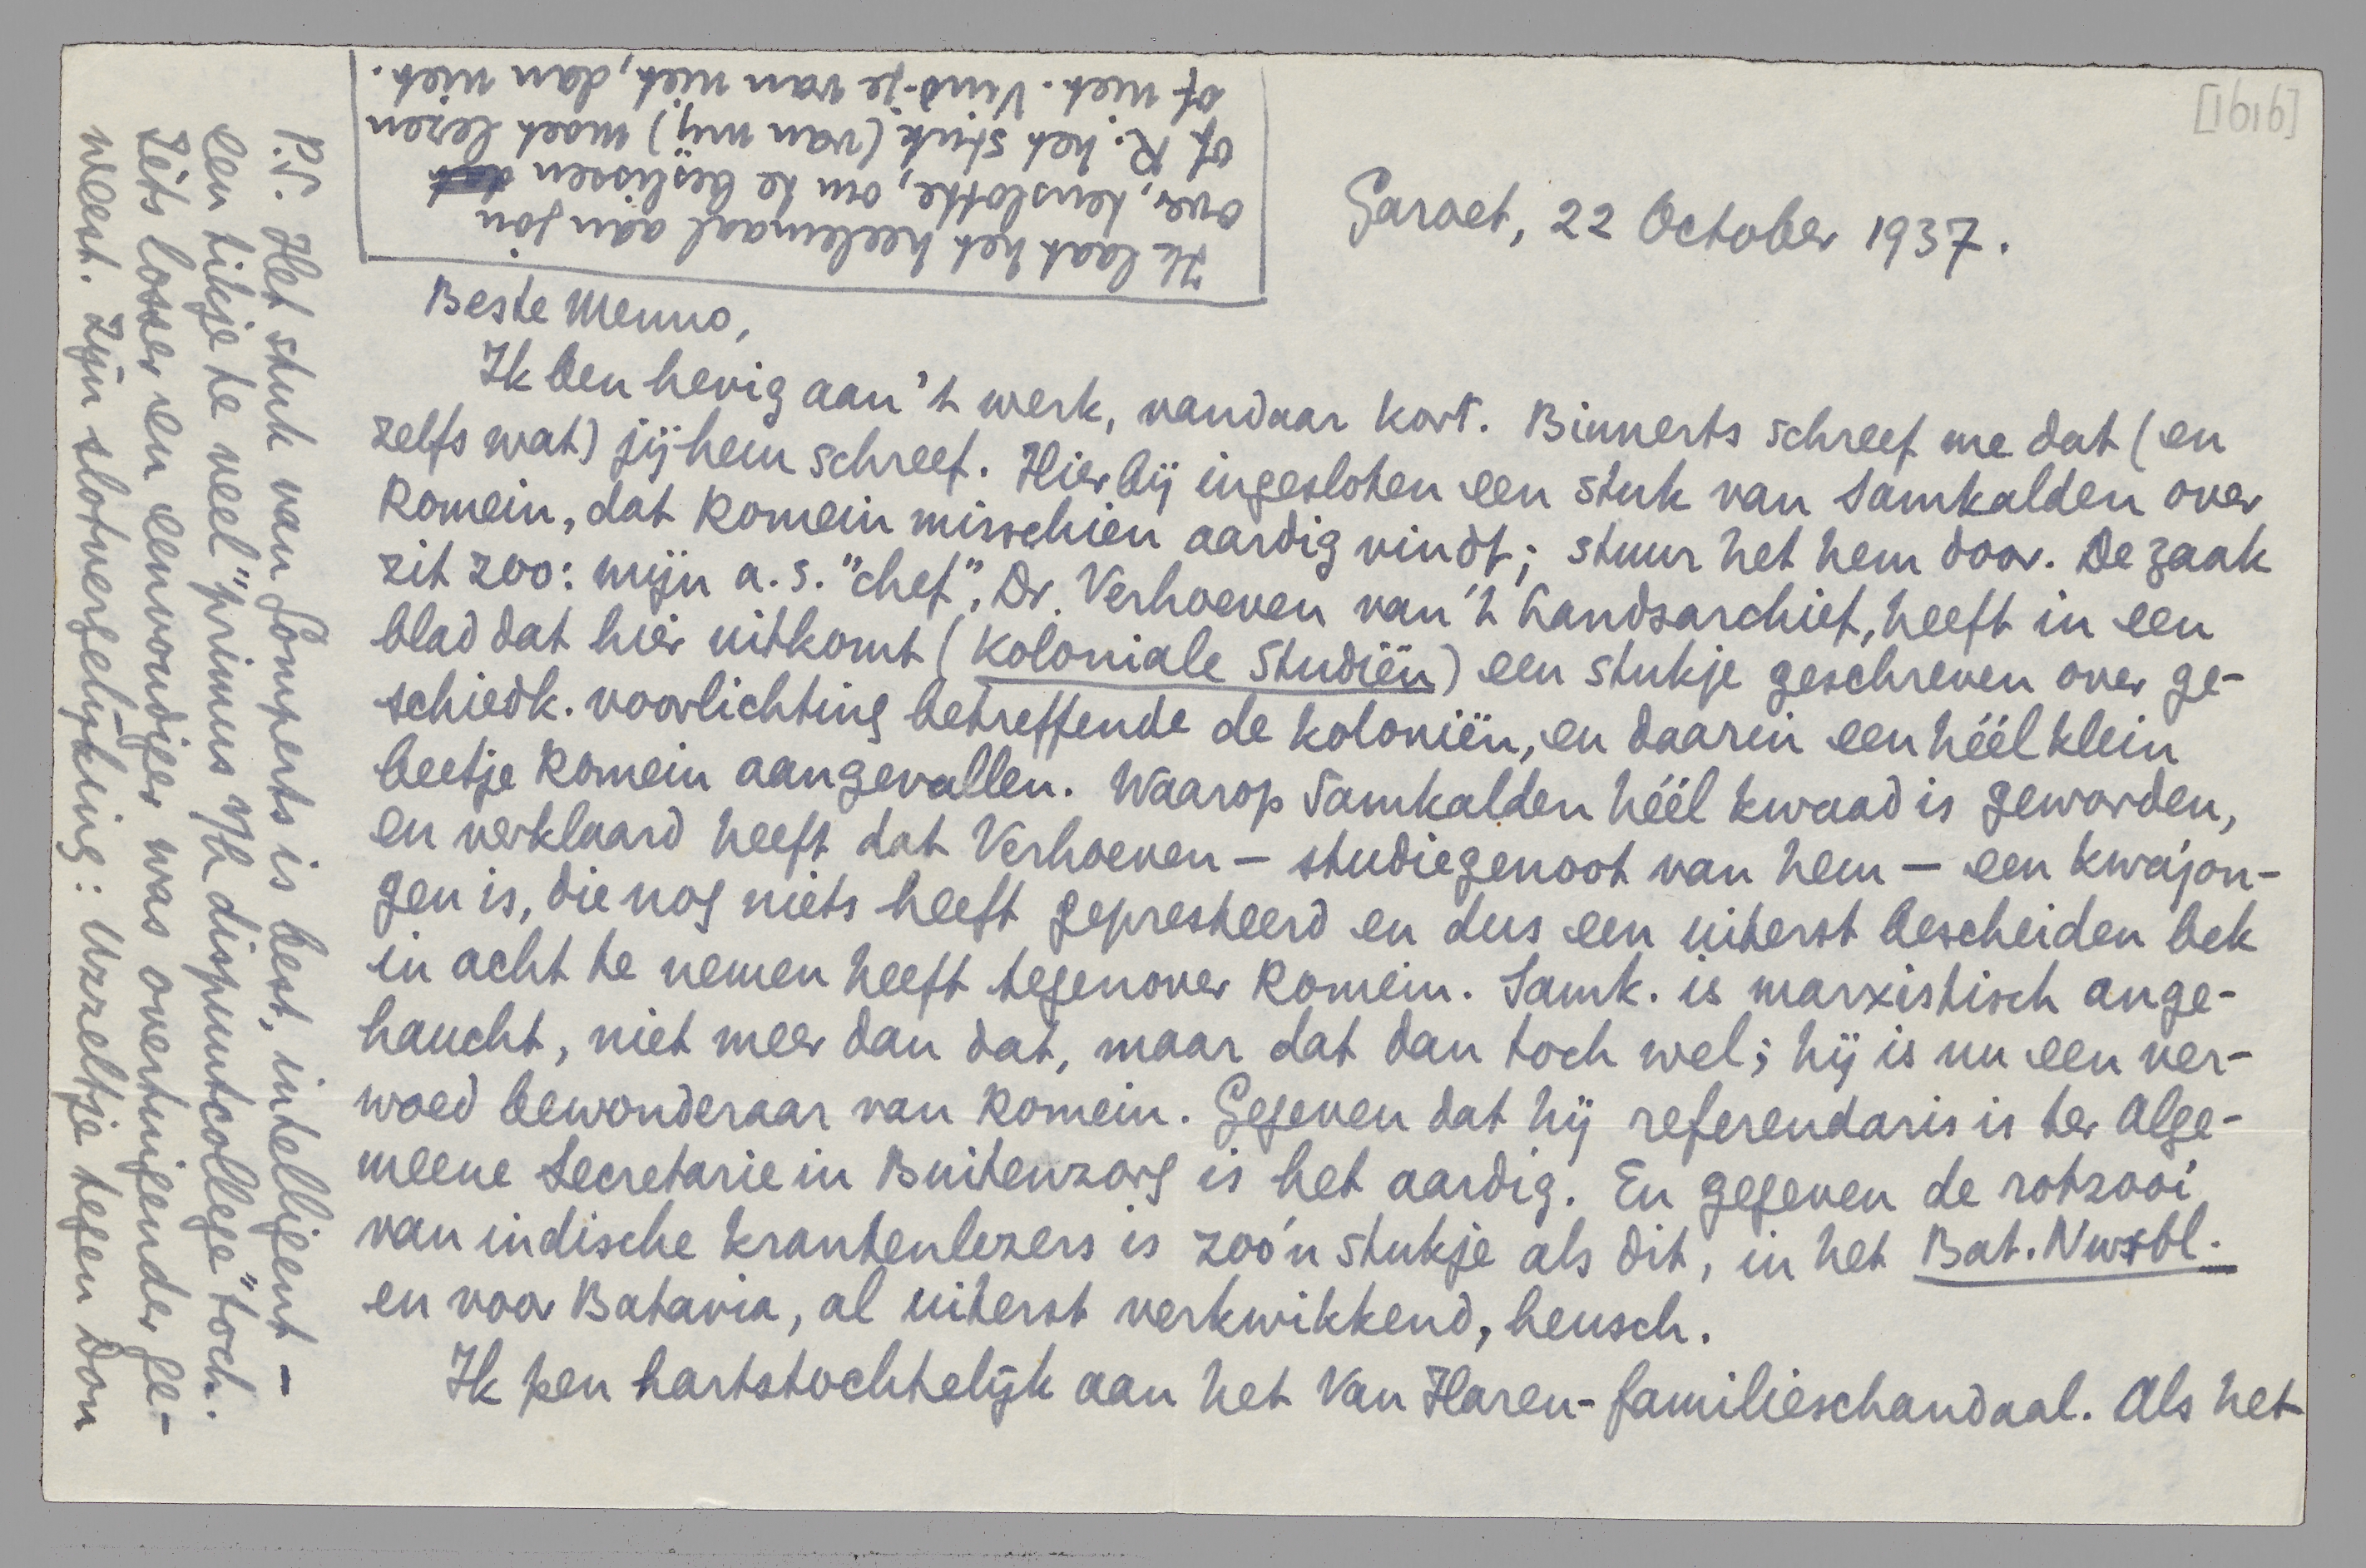 [1616]
Garoet, 22 October 1937.
Beste Menno,
Ik ben hevig aan 't werk, vandaar kort. Binnerts schreef me dat (en
zelfs wat) jij hem schreef. Hierbij ingesloten een stuk van Samkalden over
Romein, dat Romein misschien aardig vindt; stuur het hem door. De zaak
zit zoo: mijn a.s. "chef", Dr. Verhoeven van 't Landsarchief, heeft in een
blad dat hier uitkomt (Koloniale Studiën) een stukje geschreven over ge-
schiedk. voorlichting betreffende de koloniën, en daarin een héél klein
beetje Romein aangevallen. Waarop Samkalden héél kwaad is geworden,
en verklaard heeft dat Verhoeven – studiegenoot van hem – een kwajon-
gen is, die nog niets heeft gepresteerd en dus een uiterst bescheiden bek
in acht te nemen heeft tegenover Romein. Samk. is marxistisch ange-
haucht, niet meer dan dat, maar dat dan toch wel; hij is nu een ver-
woed bewonderaar van Romein. Gegeven dat hij referendaris is ter Alge-
meene Secretarie in Buitenzorg is het aardig. En gegeven de rotzooi
van indische krantenlezers is zoo'n stukje als dit, in het Bat. Nwsbl.
en voor Batavia, al uiterst verkwikkend, heusch.
Ik pen hartstochtelijk aan het Van Haren-familieschandaal. Als het
P.S. Het stuk van Gomperts is best, intelligent –
een tikje te veel "primus v/h dispuutcollege" toch.
Iets losser en eenvoudiger was overtuigender ge-
weest. Zijn slotvergelijking: Uzzeltje tegen Don
Ik laat het heelemaal aan jou
over, tenslotte, om te beslissen
of R. het stuk (van mij) moet lezen
of niet. Vind-je van niet, dan niet.